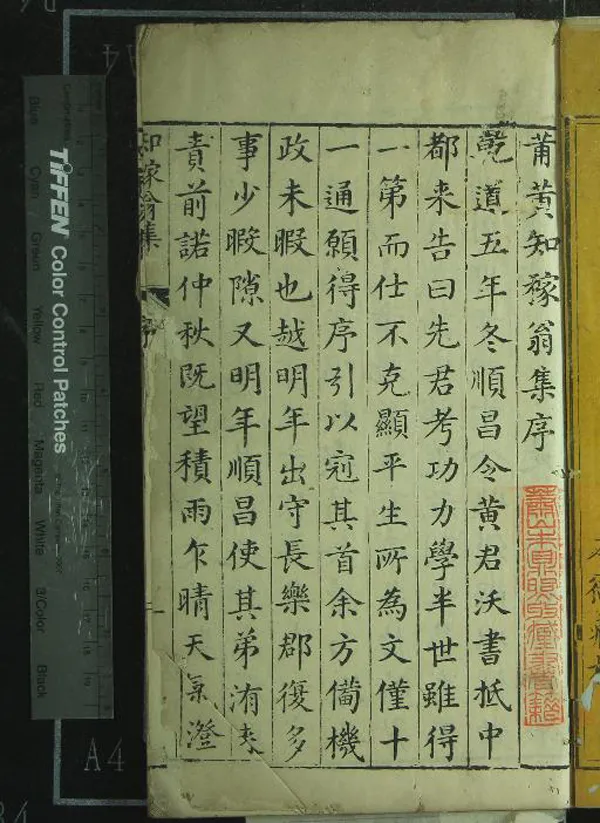 莆黃知稼翁集序
乾道五年冬順昌令黃君沃書抵中
都来告曰先君考功力學半世雖得
一第而仕不克顯平生所為文僅十
一通願得序引以冠其首余方備機
政未暇也越明年出守長樂郡復多
事少暇隙又明年順昌使其弟洧来
責前諾仲秋既望積雨乍晴天氣澄
知稼翁集
序
一
TIFFEN Color Control Patches
Blue
Cyan
Green
Yellow
Red
Magenta
White
3/Color
Black
A4